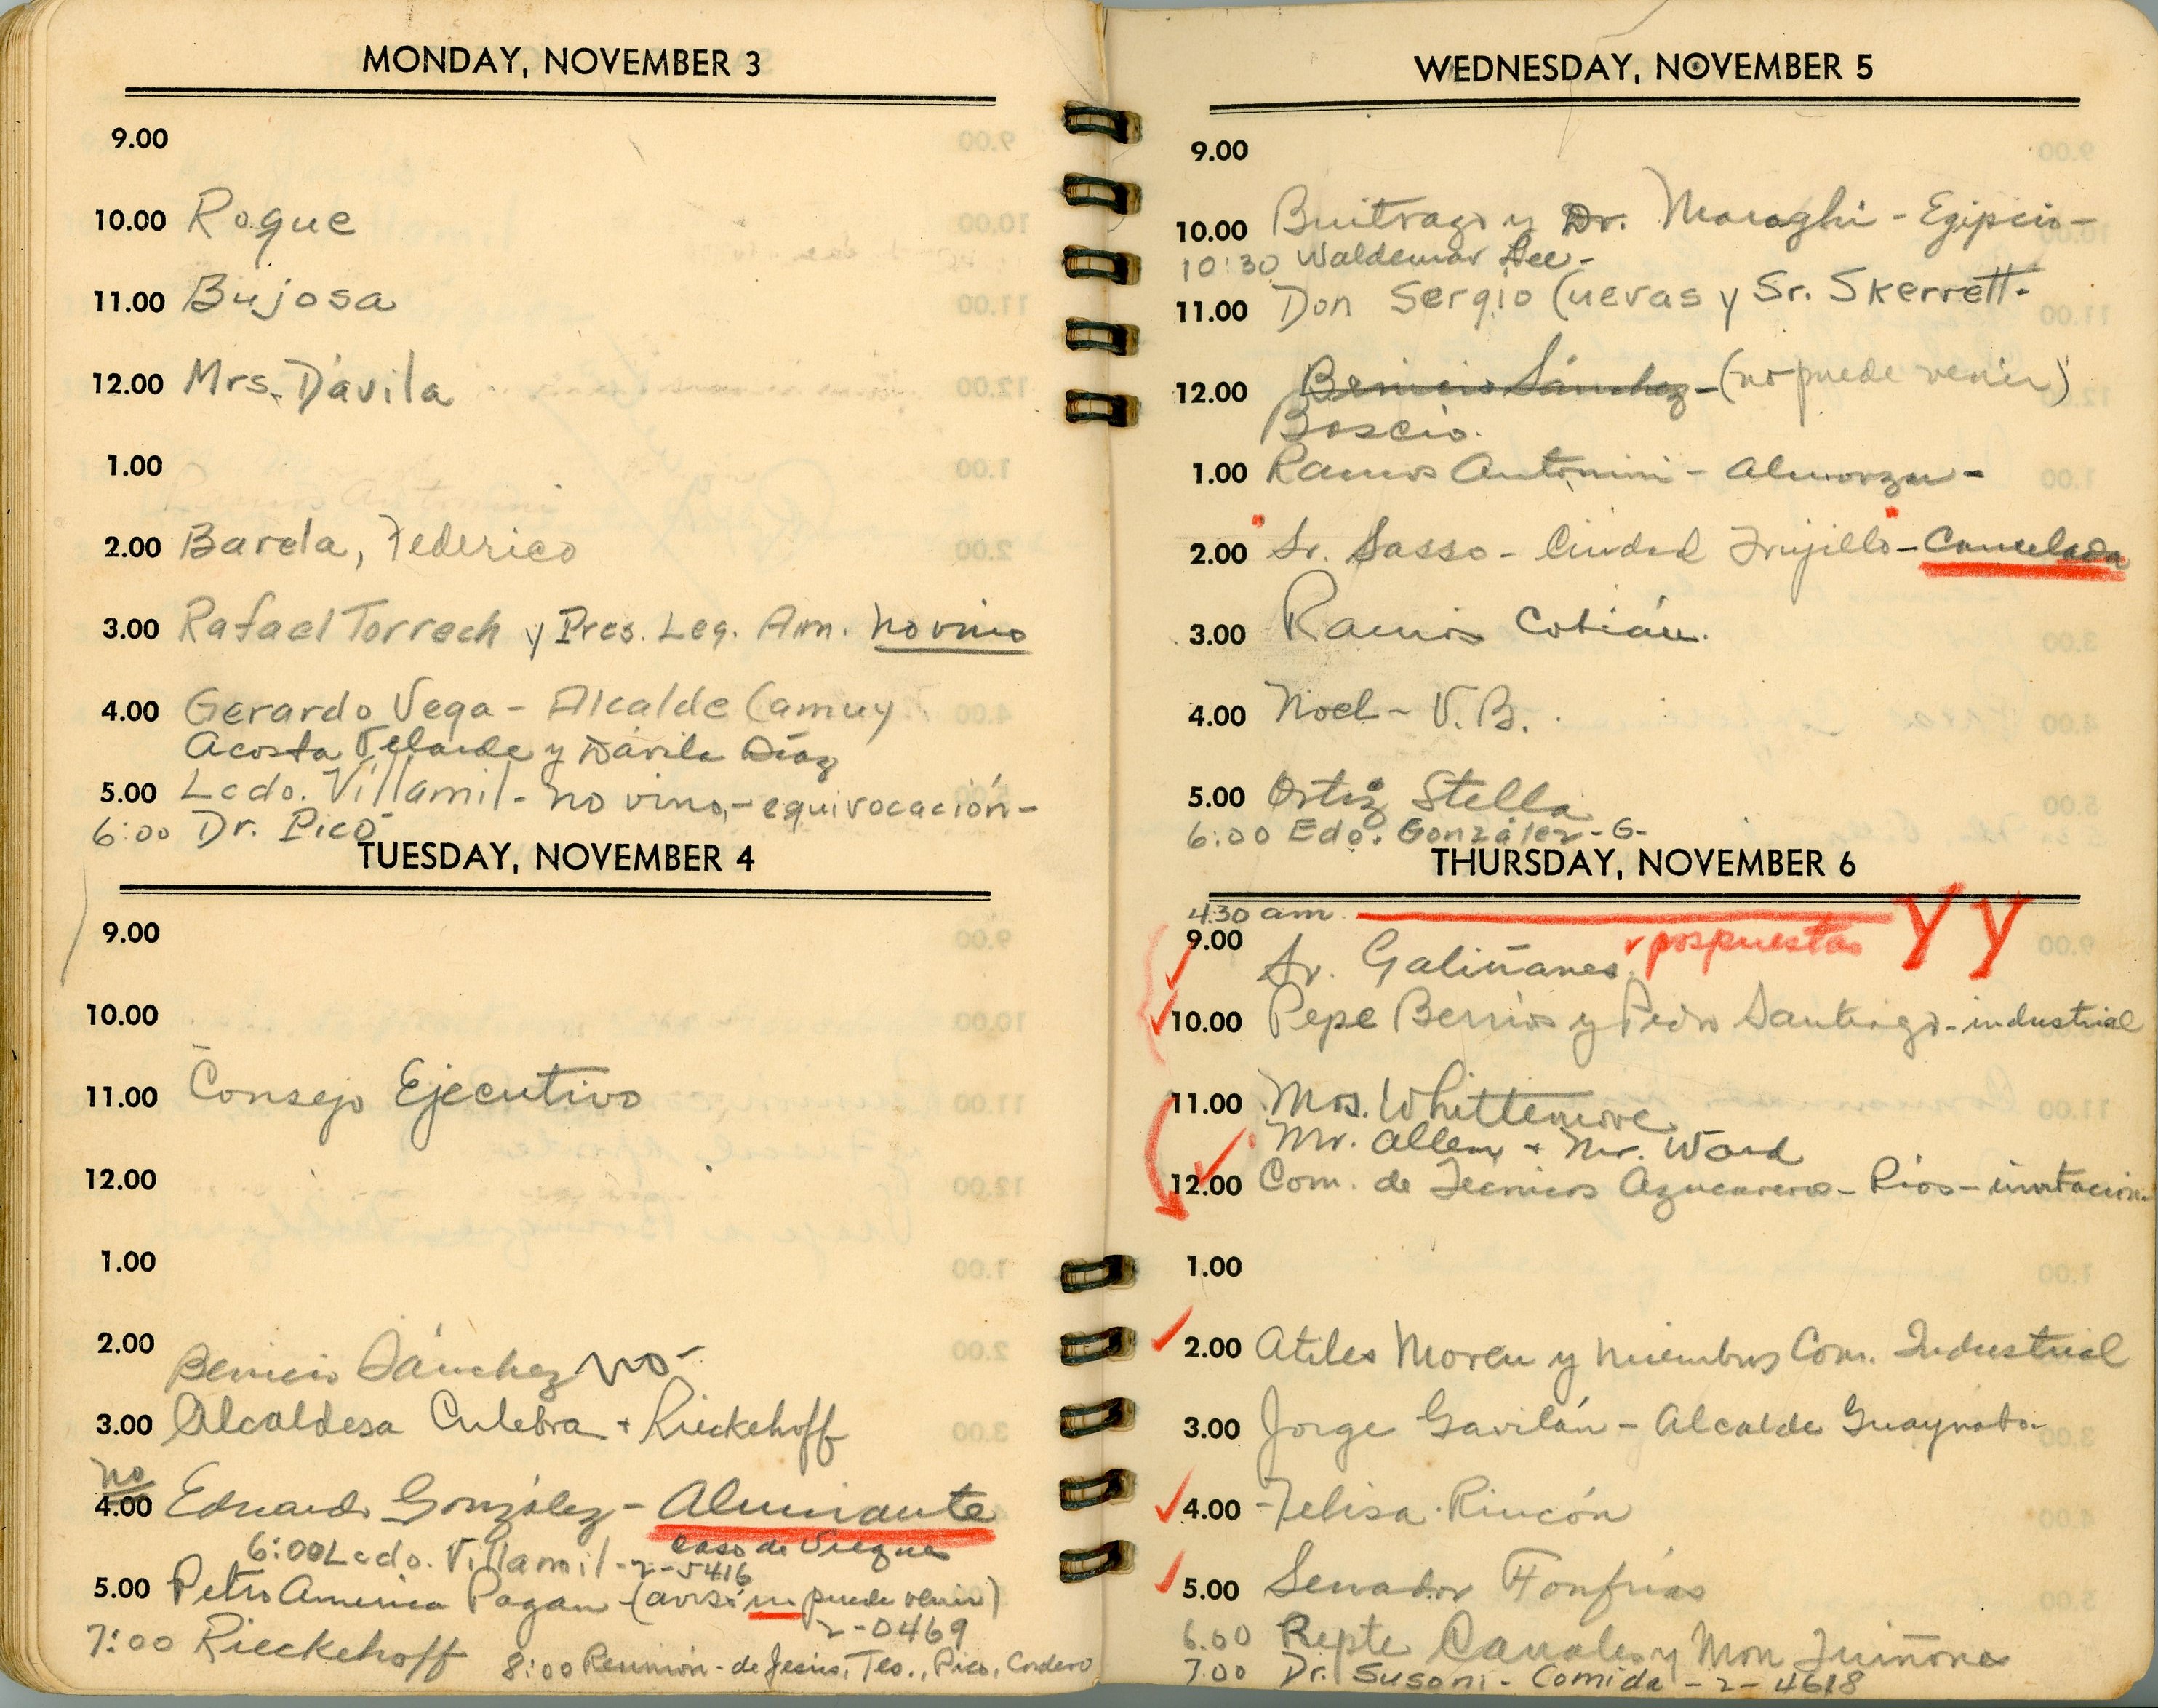 MONDAY, NOVEMBER 3
9.00
10.00 Roque
11.00 Bujosa
12.00 Mrs. Dávila
1.00
2.00 Barela, Federico
3.00 Rafael Torrech y Pres. Leg. Am. no vino
4.00 Gerardo Vega - Alcalde Camuy
Acosta Velarde y Dávila Díaz
5.00 Lcdo. Villamil - no vino - equivocación -
6:00 Dr. Picó
TUESDAY, NOVEMBER 4
9.00
10.00
11.00 Consejo Ejecutivo
12.00
1.00
2.00
Benicio Sánchez no
3.00 Alcaldesa Culebra + Rieckehoff
no
4.00 Eduardo González - Almirante
caso de Vieques
6:00 Lcdo. Villamil - 2-5416
5.00 Petro América Pagán - (avisó no puede venir)
2-0469
7:00 Rieckehoff
8:00 Reunión - de Jesús, Teo., Picó, Cordero
WEDNESDAY, NOVEMBER 5
9.00
10.00 Buitrago y Dr. Maraghi - Egipcio -
10:30 Waldemar Lee -
11.00 Don Sergio Cuevas y Sr. Skerrett -
12.00 Benicio Sánchez - (no puede venir)
Boscio.
1.00 Ramos Antonini - Almorzar -
2.00 Sr. Sasso - Ciudad Trujillo - Cancelada
3.00 Ramos Cobián.
4.00 Noel - V.B.
5.00 Ortiz Stella
6:00 Edo. González - G -
THURSDAY, NOVEMBER 6
4.30 am. YY
9.00 pospuestas
Sr. Galiñanes
10.00 Pepe Berríos y Pedro Santiago - industrial
11.00 Mrs. Whittemore
Mr. Allen + Mr. Ward
12.00 Com. de Técnicos Azucareros - Ríos - invitación
1.00
2.00 Atiles Moreu y miembros Com. Industrial
3.00 Jorge Gavilán - Alcalde Guaynabo
4.00 - Felisa Rincón
5.00 Senador Fonfrías
6.00 Repte Canales y Mon Quiñones
7.00 Dr. Susoni - Comida - 2-4618